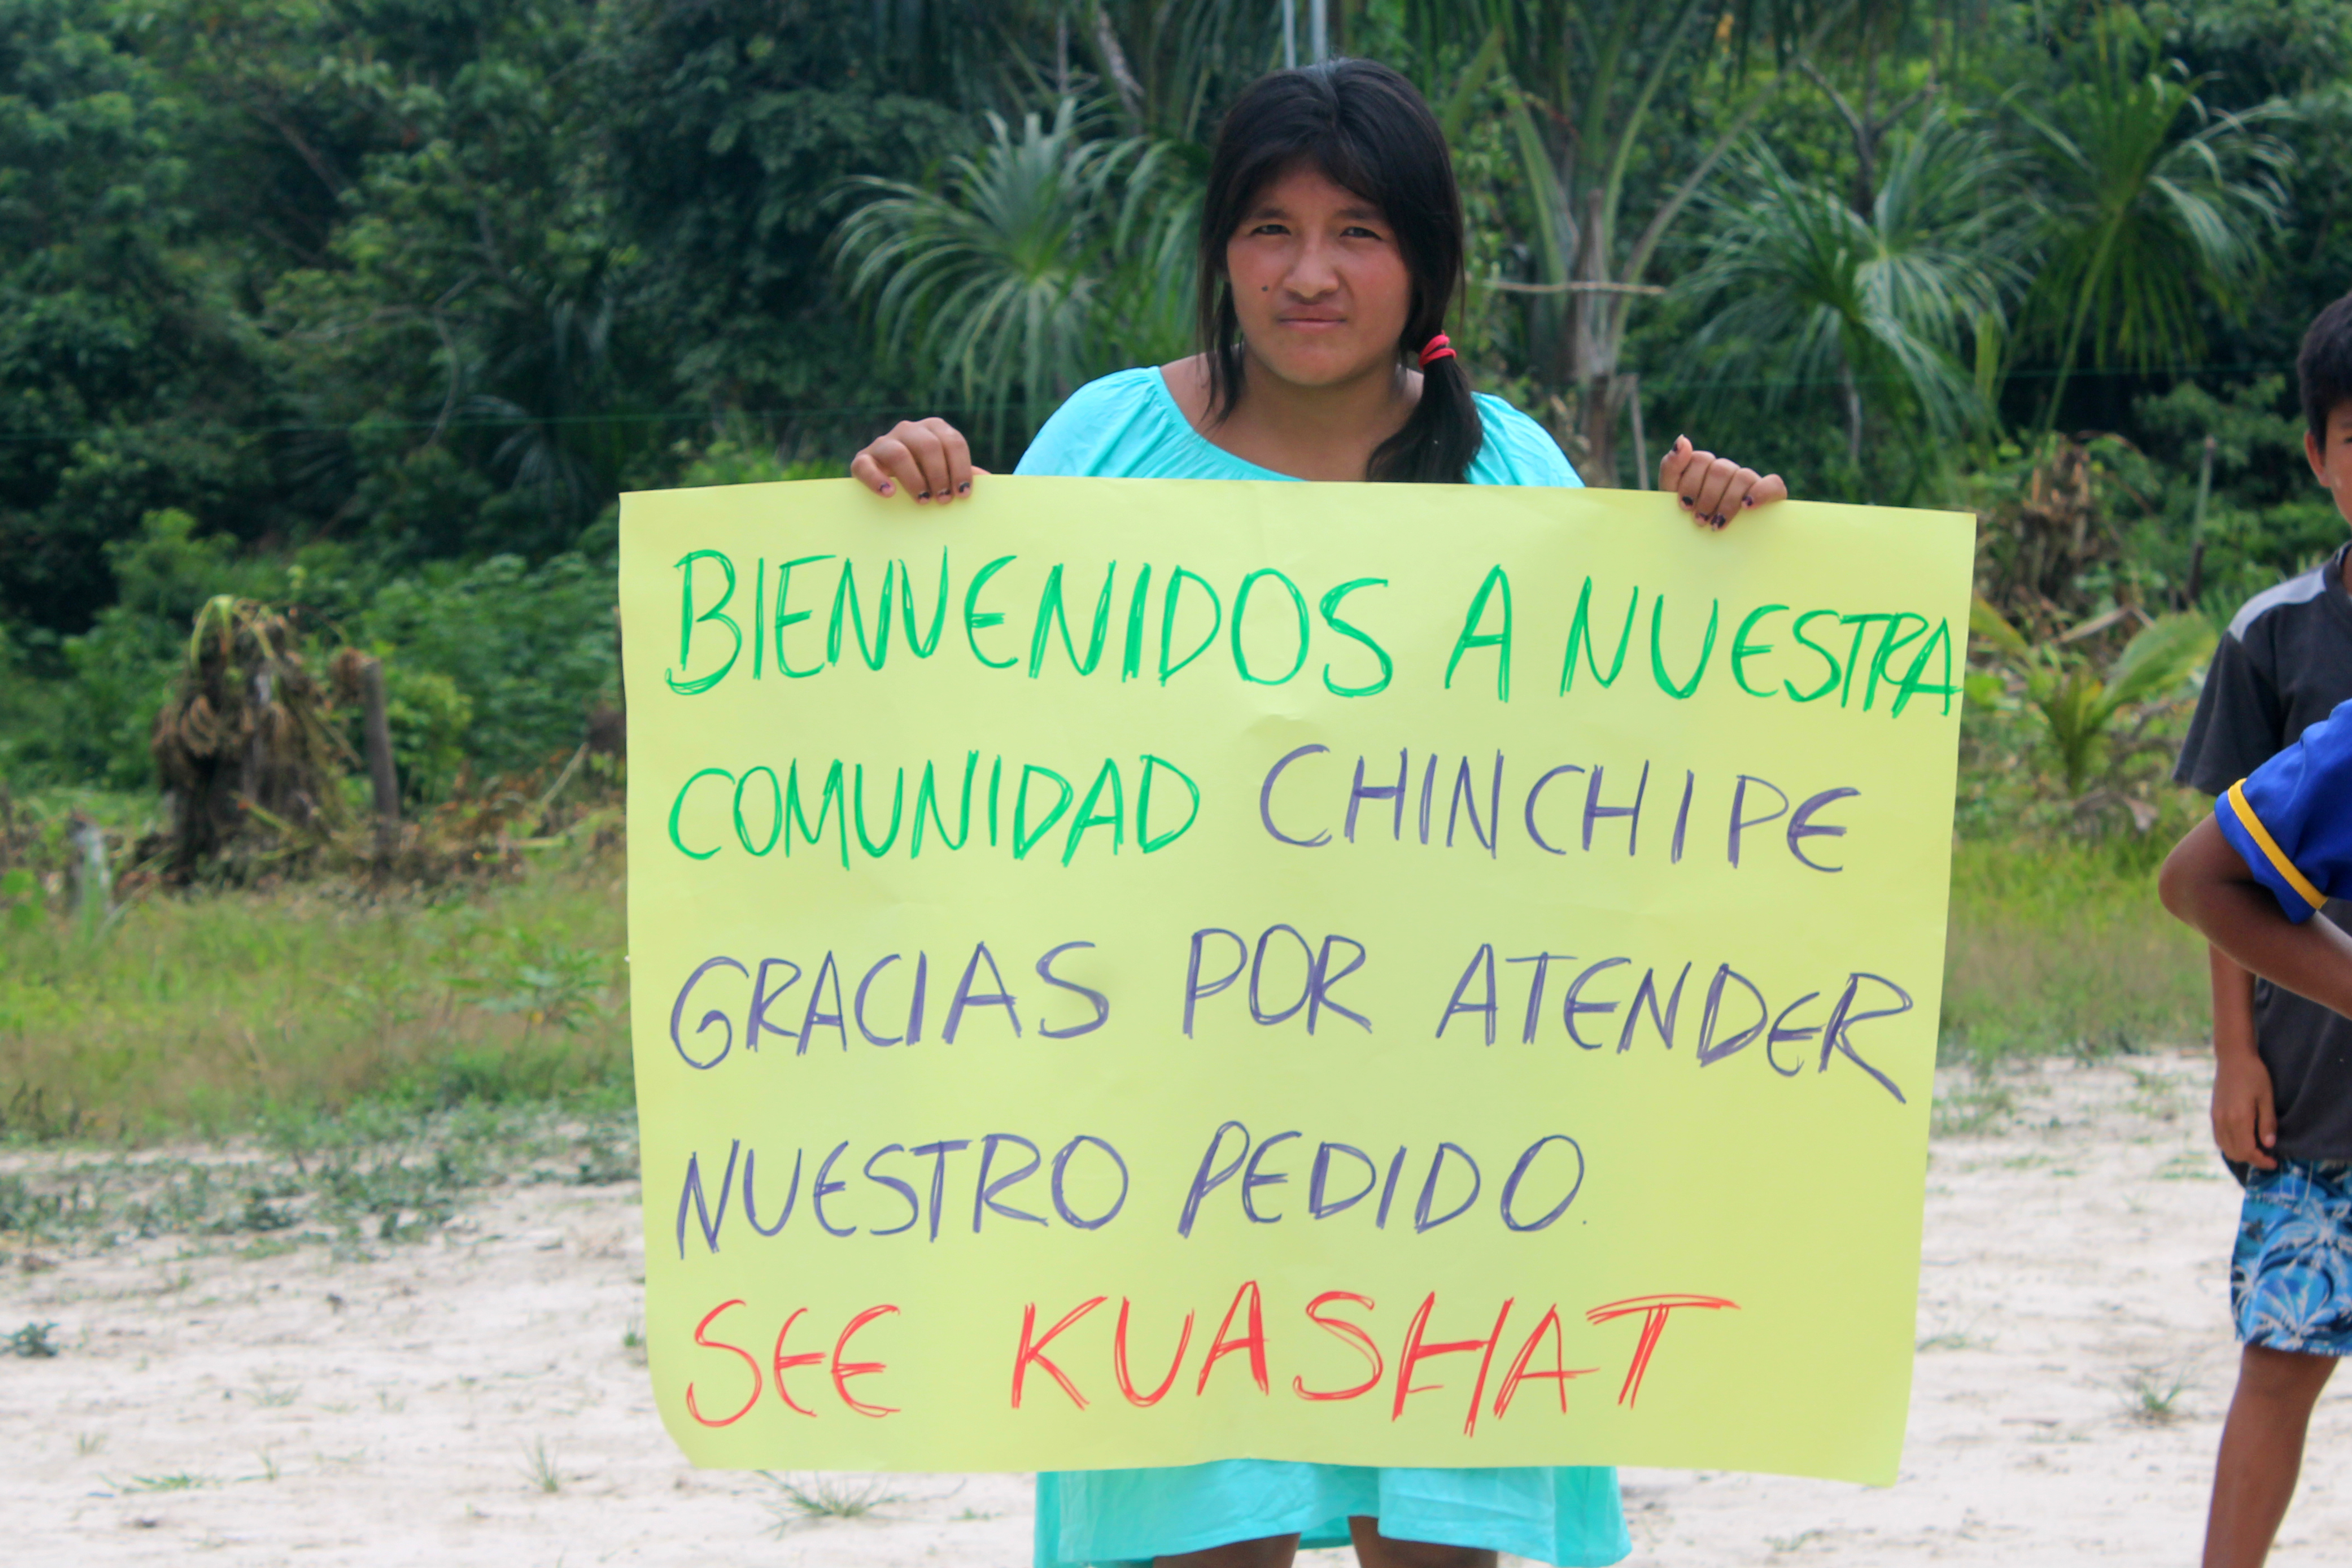 BIENVENIDOS A NUESTRA
COMUNIDAD CHINCHIPE
GRACIAS POR ATENDER
NUESTRO PEDIDO.
SEE KUASHAT